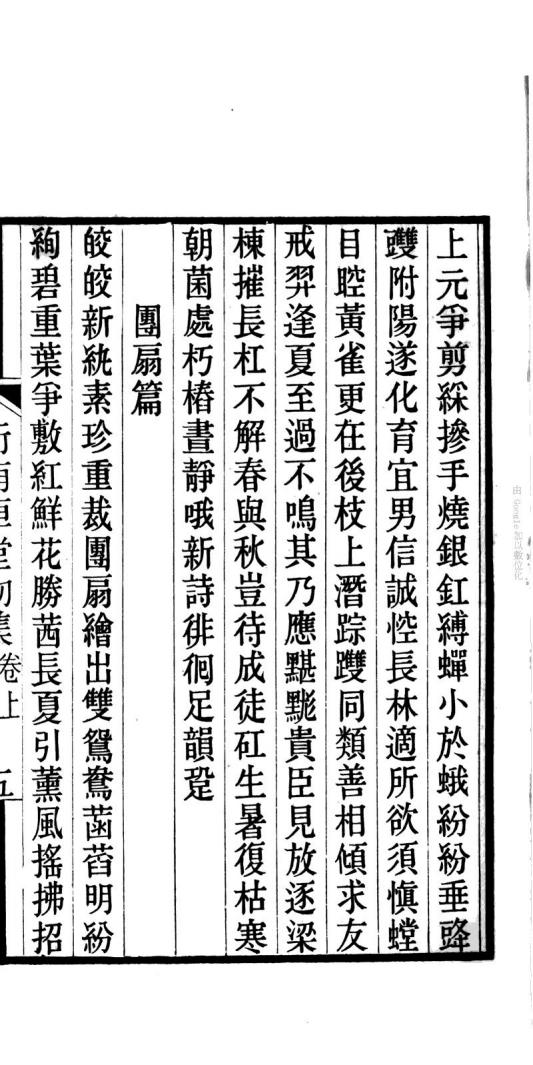 上元爭剪綵摻手燒銀釭縛蟬小於蛾紛紛垂
附陽遂化育宜男信誠悾長林適所欲須慎螳
目睉黃雀更在後枝上潛踪躩同類善相傾求友
戒羿逢夏至過不鳴其乃應黮黮貴臣見放逐梁
棟摧長杠不解春與秋豈待成徒矼生暑復枯寒
朝菌處朽樁晝靜哦新詩徘徊足韻跫
團扇篇
皎皎新紈素珍重裁團扇繪出雙鴛鴦菡萏明紛
絢碧重葉爭敷紅鮮花勝茜長夏引薰風搖拂招
堂初集卷上 五
由 Google 加以數位化